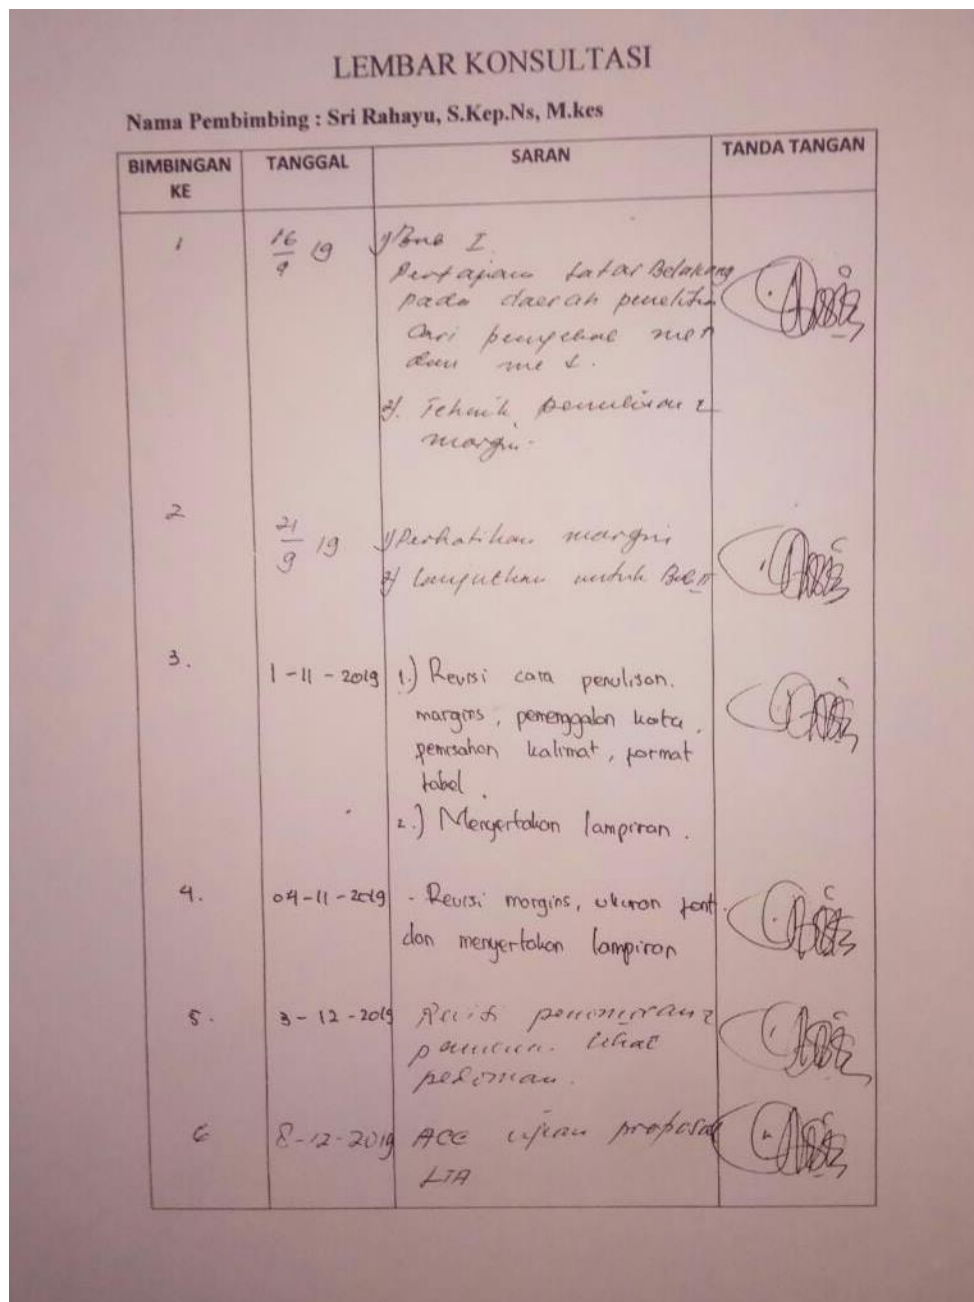 LEMBAR KONSULTASI
Nama Pembimbing : Sri Rahayu, S.Kep.Ns, M.kes
BIMBINGAN KE
TANGGAL
SARAN
TANDA TANGAN
1
16/9 19
1) Bab I
Latar Belakang
pada daerah peneliti
cari
dan
2). Tehnik
margin.
2
21/9 19
1) Perhatikan margin
2) Lanjutkan untuk Bab II
3.
1-11-2019
1.) Revisi cara penulisan.
margins, pemenggalan kata,
pemisahan kalimat, format
tabel.
2.) Menyertakan lampiran.
4.
04-11-2019
- Revisi margins, ukuran font.
dan menyertakan lampiran
5.
3-12-2019
lihat
pedoman.
6
8-12-2019
ACC ujian proposal
LTA